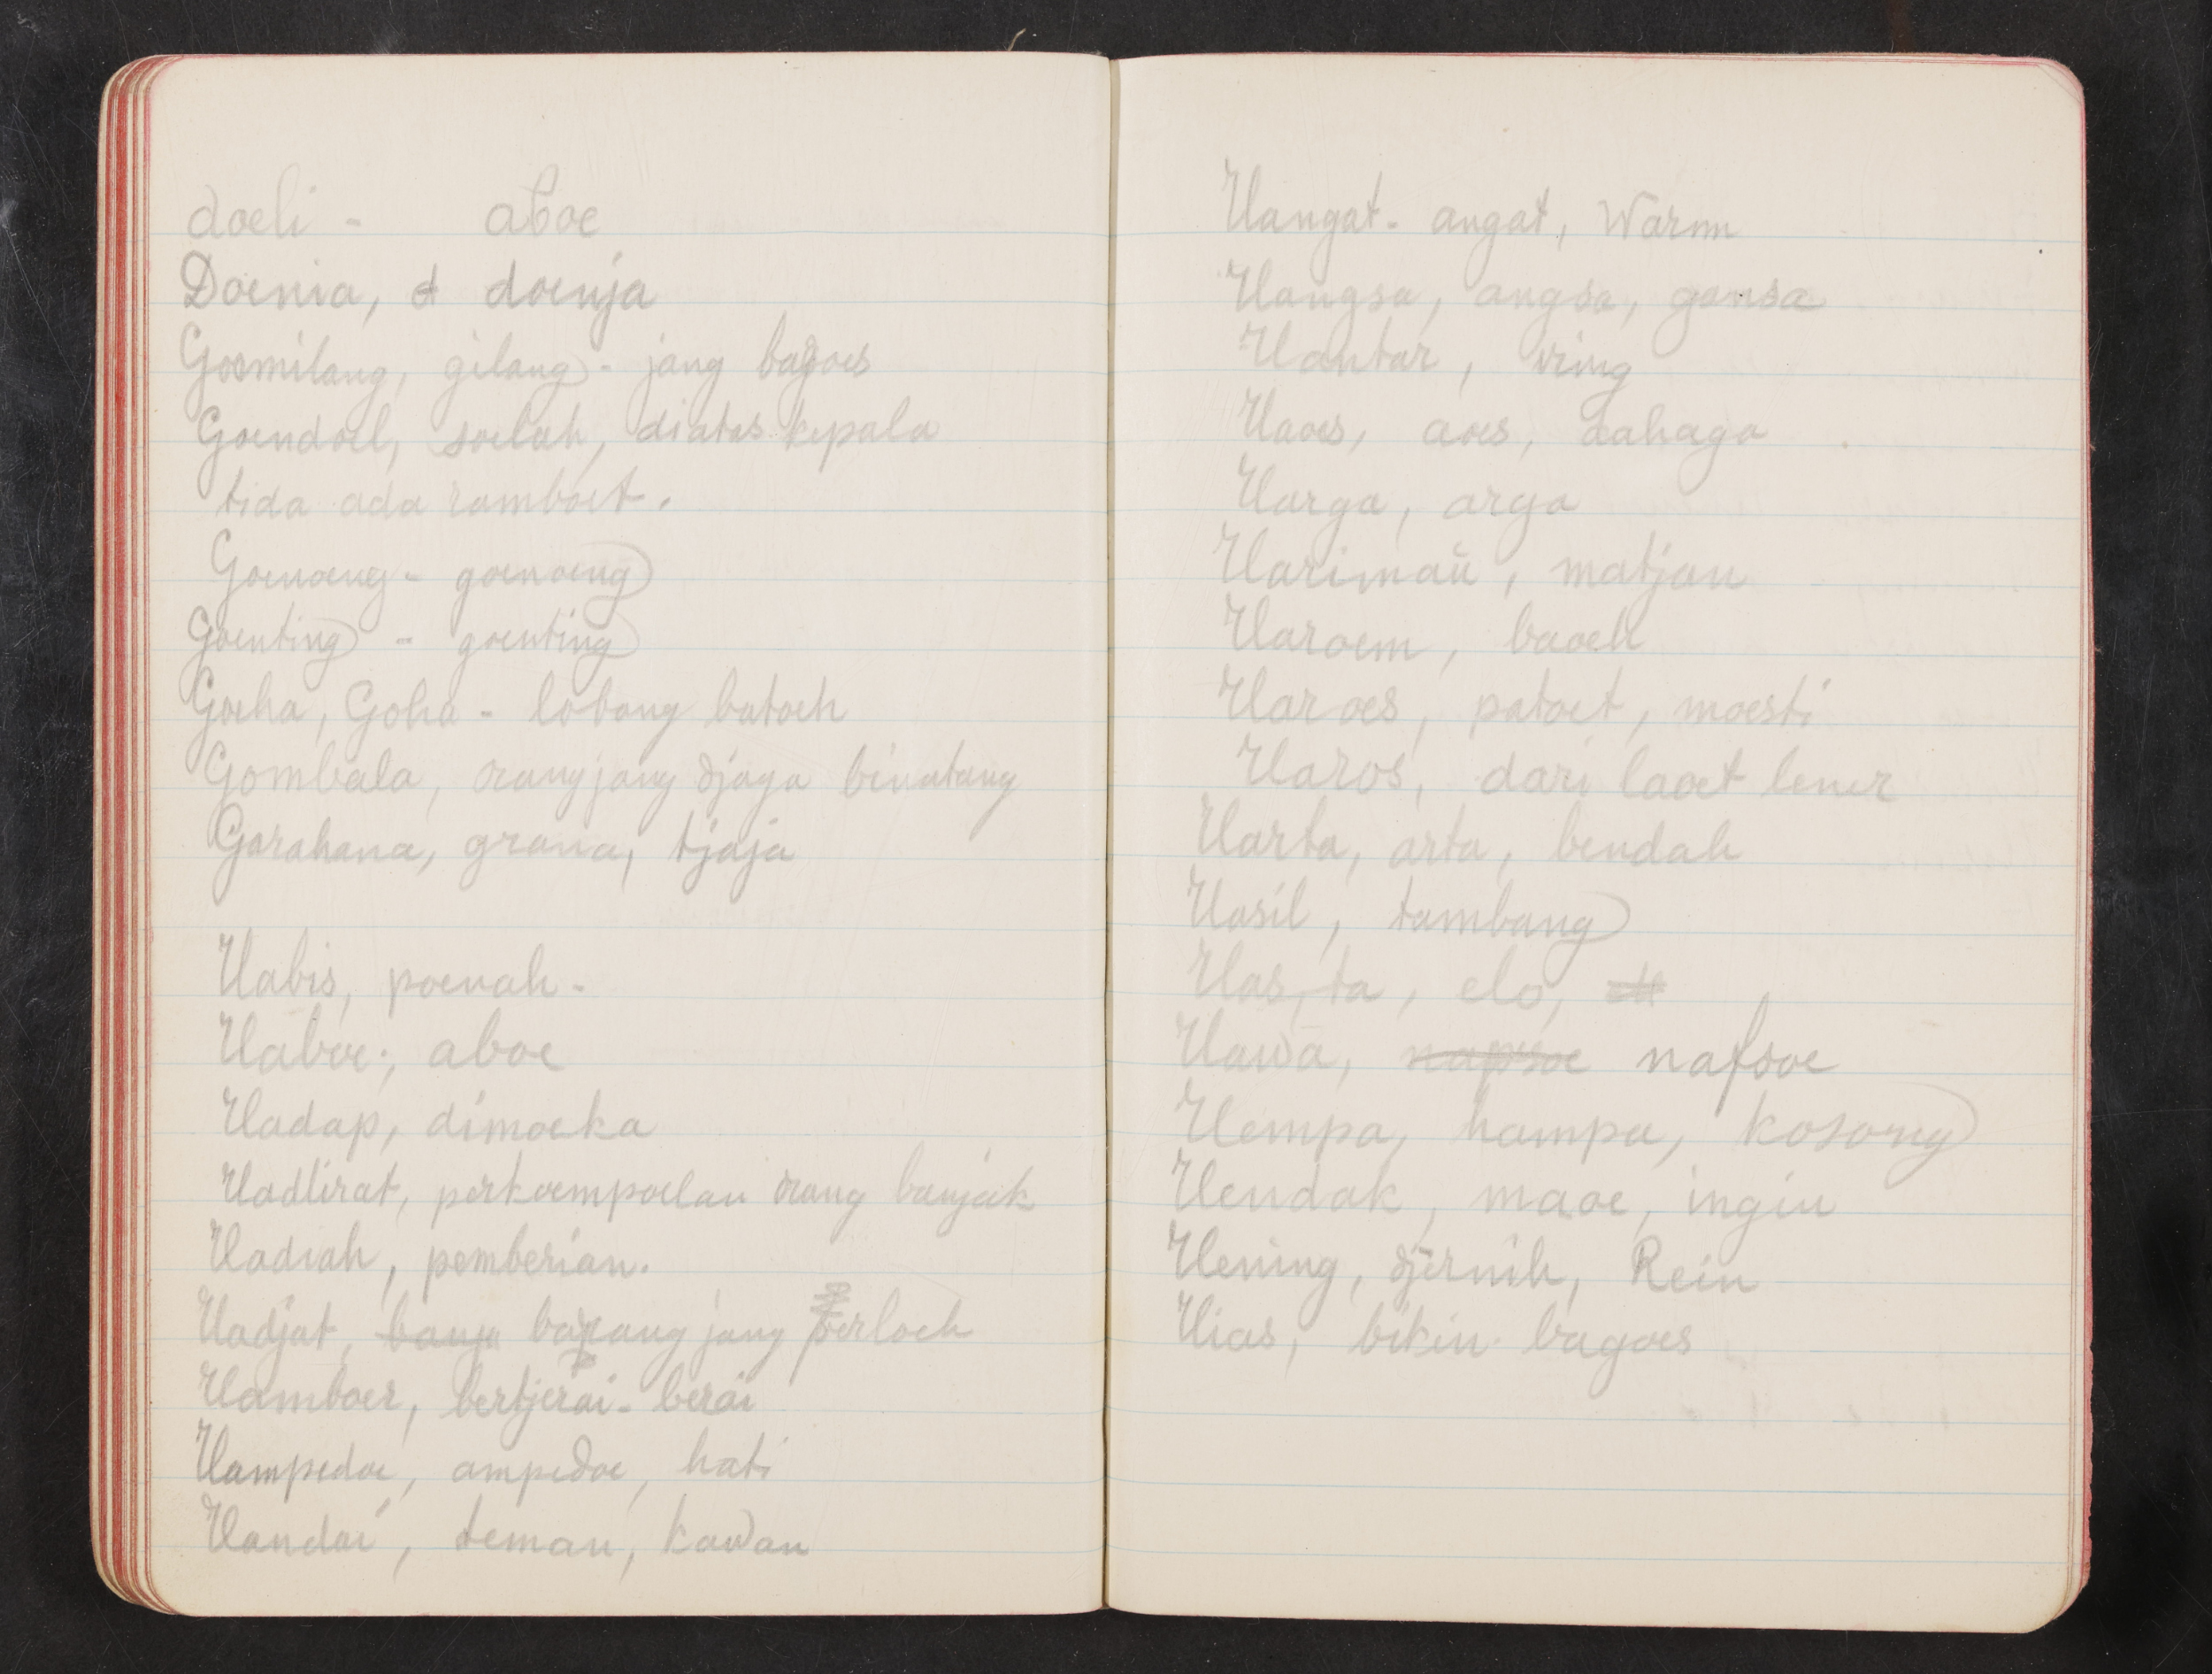 doeli - aboe
Doenia, d doenja
Goemilang, gilang - jang bagoes
Goendoel, soelah, diatas kepala
tida ada ramboet.
Goenoeng - goenoeng
Goenting - goenting
Goeha, Goha - lobang batoeh
Gombala, orang jang djaga binatang
Garahana, grana, tjaja
Habis, poenah -
Haboe, aboe
Hadap, dimoeka
Hadlirat, perkoempoelan orang banjak
Hadiah, pemberian.
Hadjat, banja barang jang perloeh
Hamboer, bertjerai-berai
Hampedoe, ampedoe, hati
Handai, teman, kawan
Hangat - angat, Warm
Hangsa, angsa, gansa
Hantar, iring
Haoes, aoes, dahaga
Harga, arga
Harimaŭ, matjan
Haroem, baoeh
Haroes, patoet, moesti
Haros, dari laoet
Harta, arta, bendah
Hasil, tambang
Has, ta, elo,
Hawa, napsoe nafsoe
Hempa, hampa, kosong
Hendak, maoe, ingin
Hening, djernih, Rein
Hias, bikin bagoes